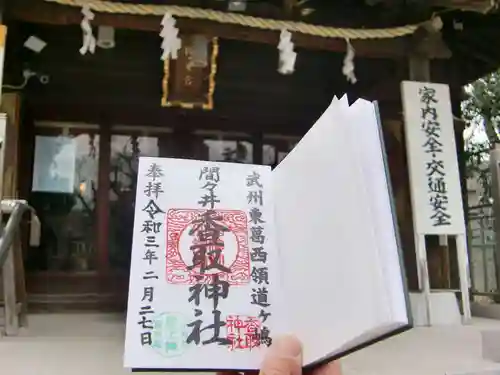 武州東葛西領道ヶ嶋
間々井
香取神社
奉拝 令和三年二月二七日
香取神社
家内安全・交通安全